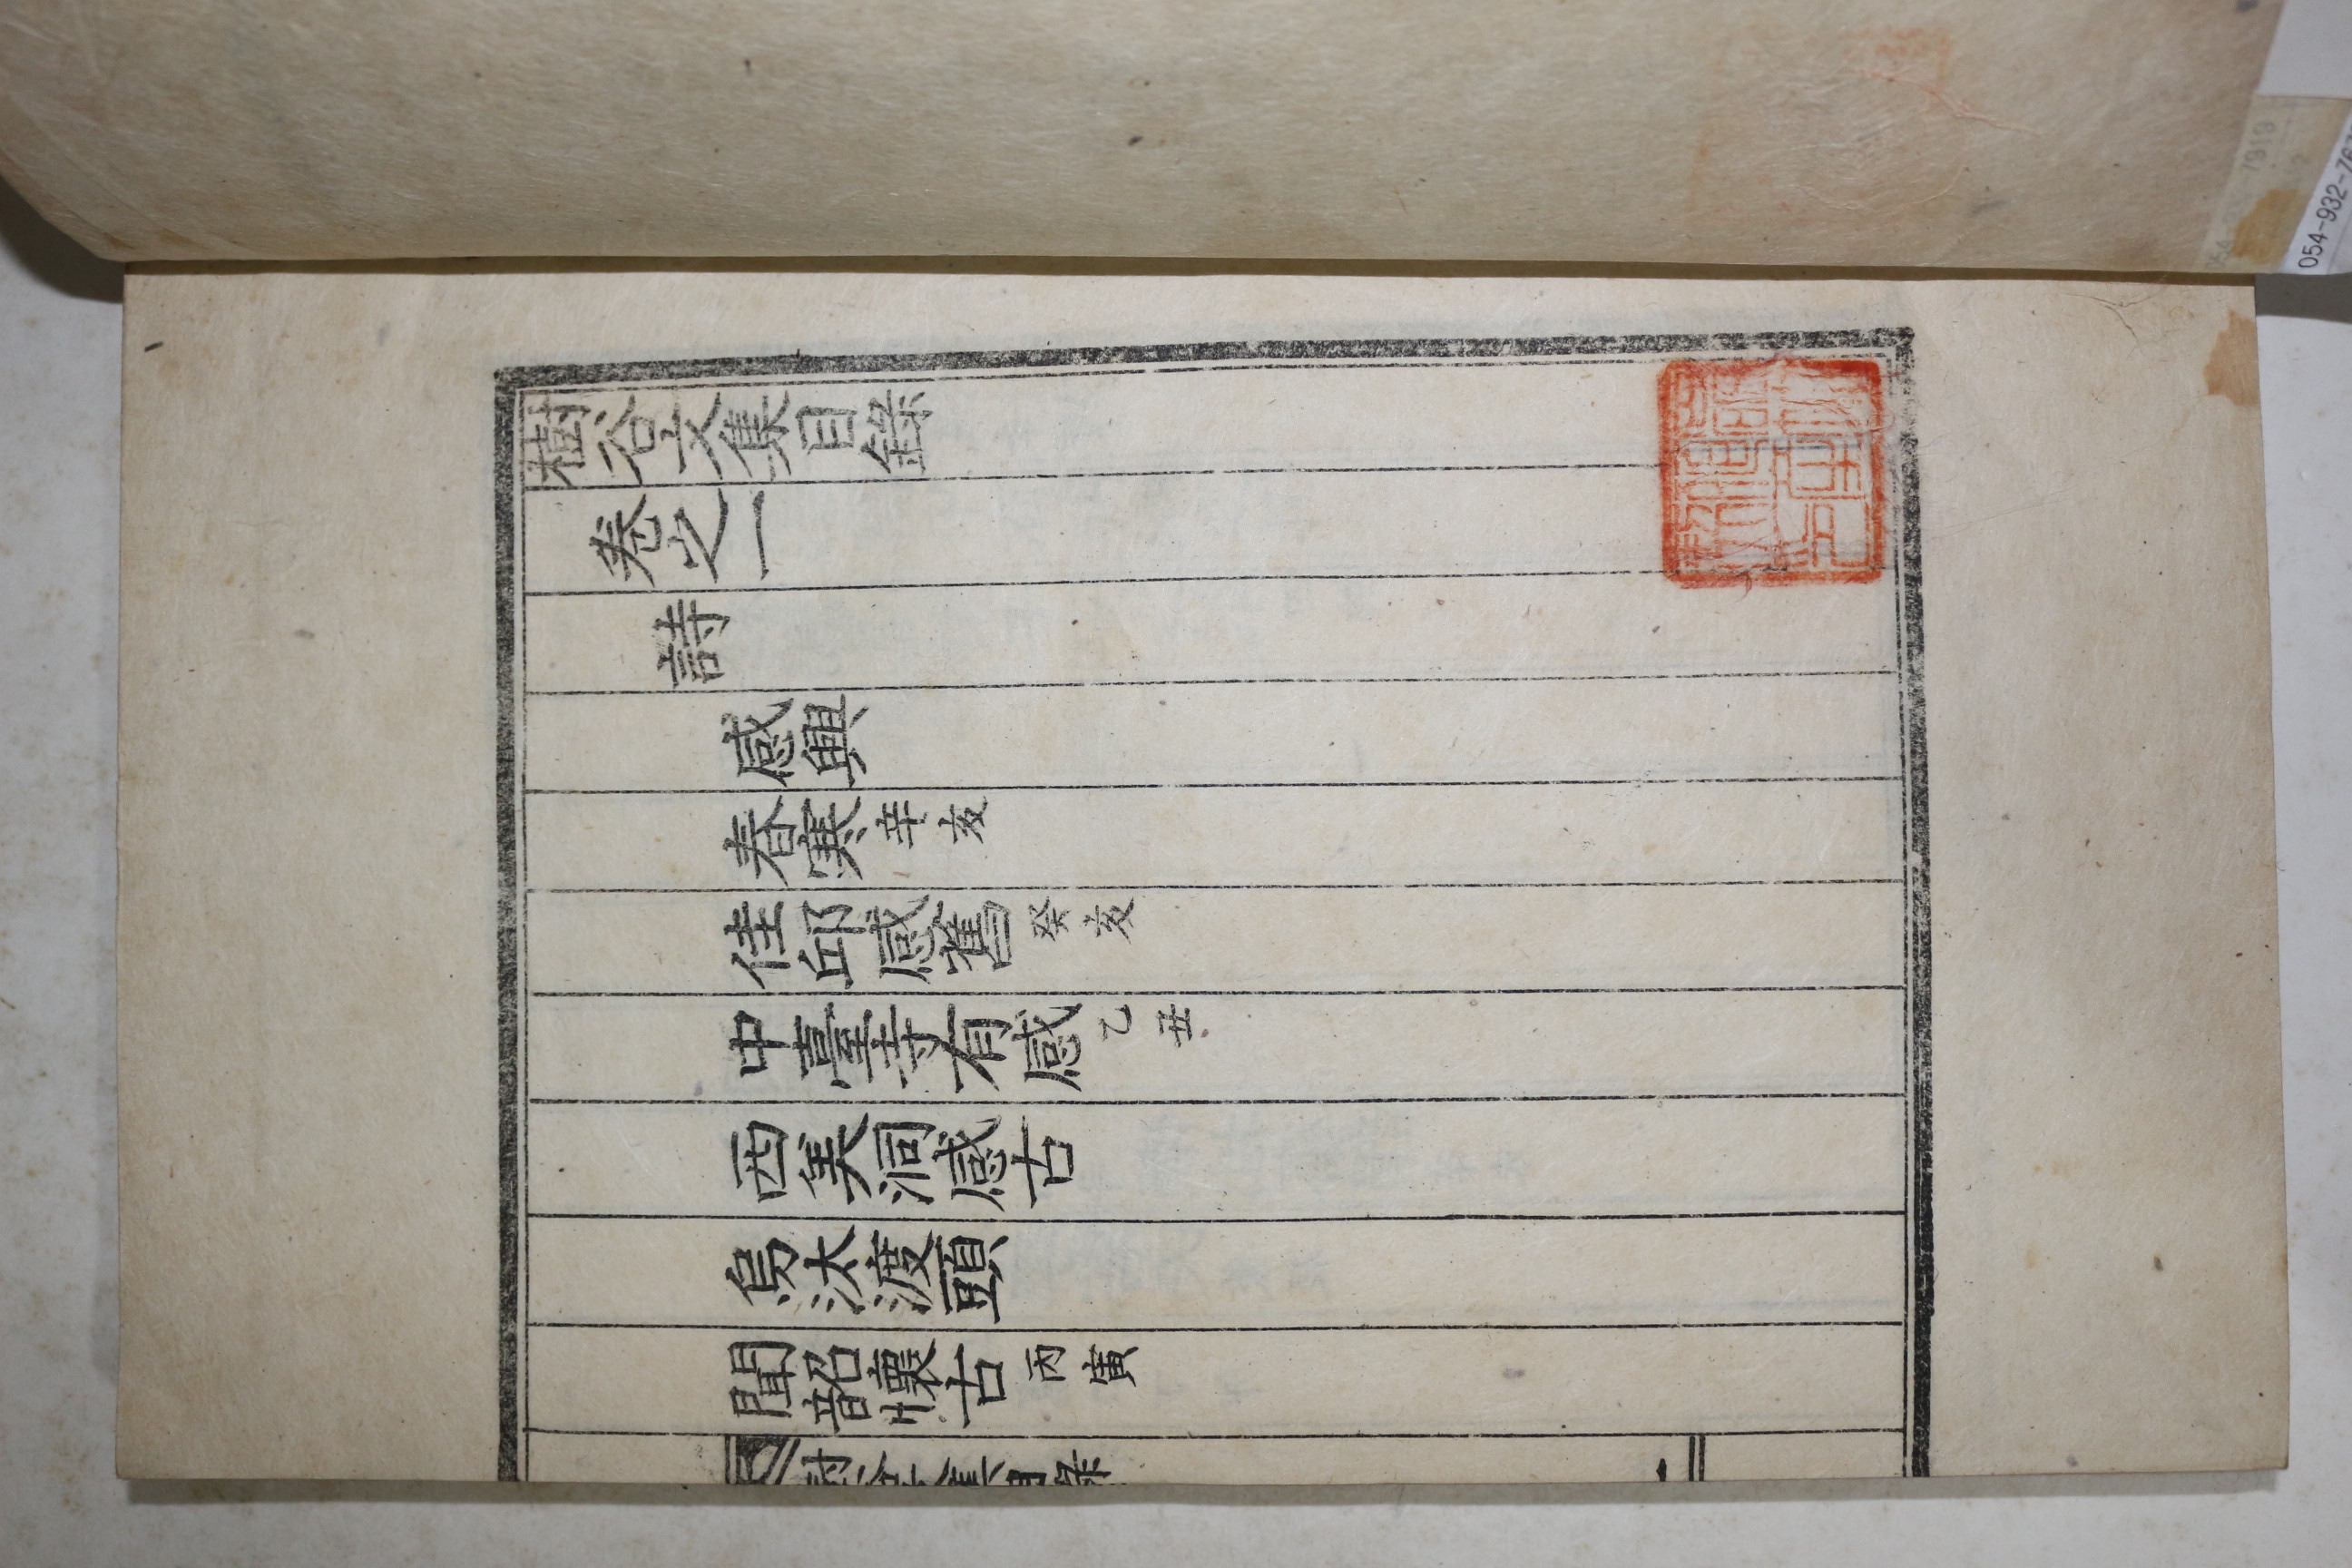 樹谷文集目錄
卷之一
詩
感興
春寒 辛亥
佳邱感舊 癸亥
中臺寺有感 乙丑
西美洞感古
烏汰渡頭
聞韶懷古 丙寅
樹谷文集目錄
一
054-932-76